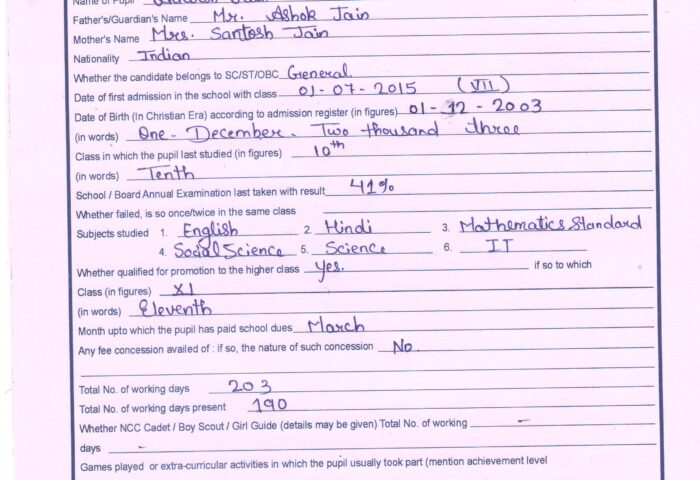 Name of Pupil
Father's/Guardian's Name Mr. Ashok Jain
Mother's Name Mrs. Santosh Jain
Nationality Indian
Whether the candidate belongs to SC/ST/OBC General.
Date of first admission in the school with class 01-07-2015 (VII)
Date of Birth (In Christian Era) according to admission register (in figures) 01-12-2003
(in words) One - December - Two thousand three
Class in which the pupil last studied (in figures) 10th
(in words) Tenth
School / Board Annual Examination last taken with result 41%
Whether failed, is so once/twice in the same class
Subjects studied 1. English 2. Hindi 3. Mathematics Standard
4. Social Science 5. Science 6. IT
Whether qualified for promotion to the higher class yes. if so to which
Class (in figures) XI
(in words) Eleventh
Month upto which the pupil has paid school dues March
Any fee concession availed of : if so, the nature of such concession No
Total No. of working days 203
Total No. of working days present 190
Whether NCC Cadet / Boy Scout / Girl Guide (details may be given) Total No. of working -
days -
Games played or extra-curricular activities in which the pupil usually took part (mention achievement level